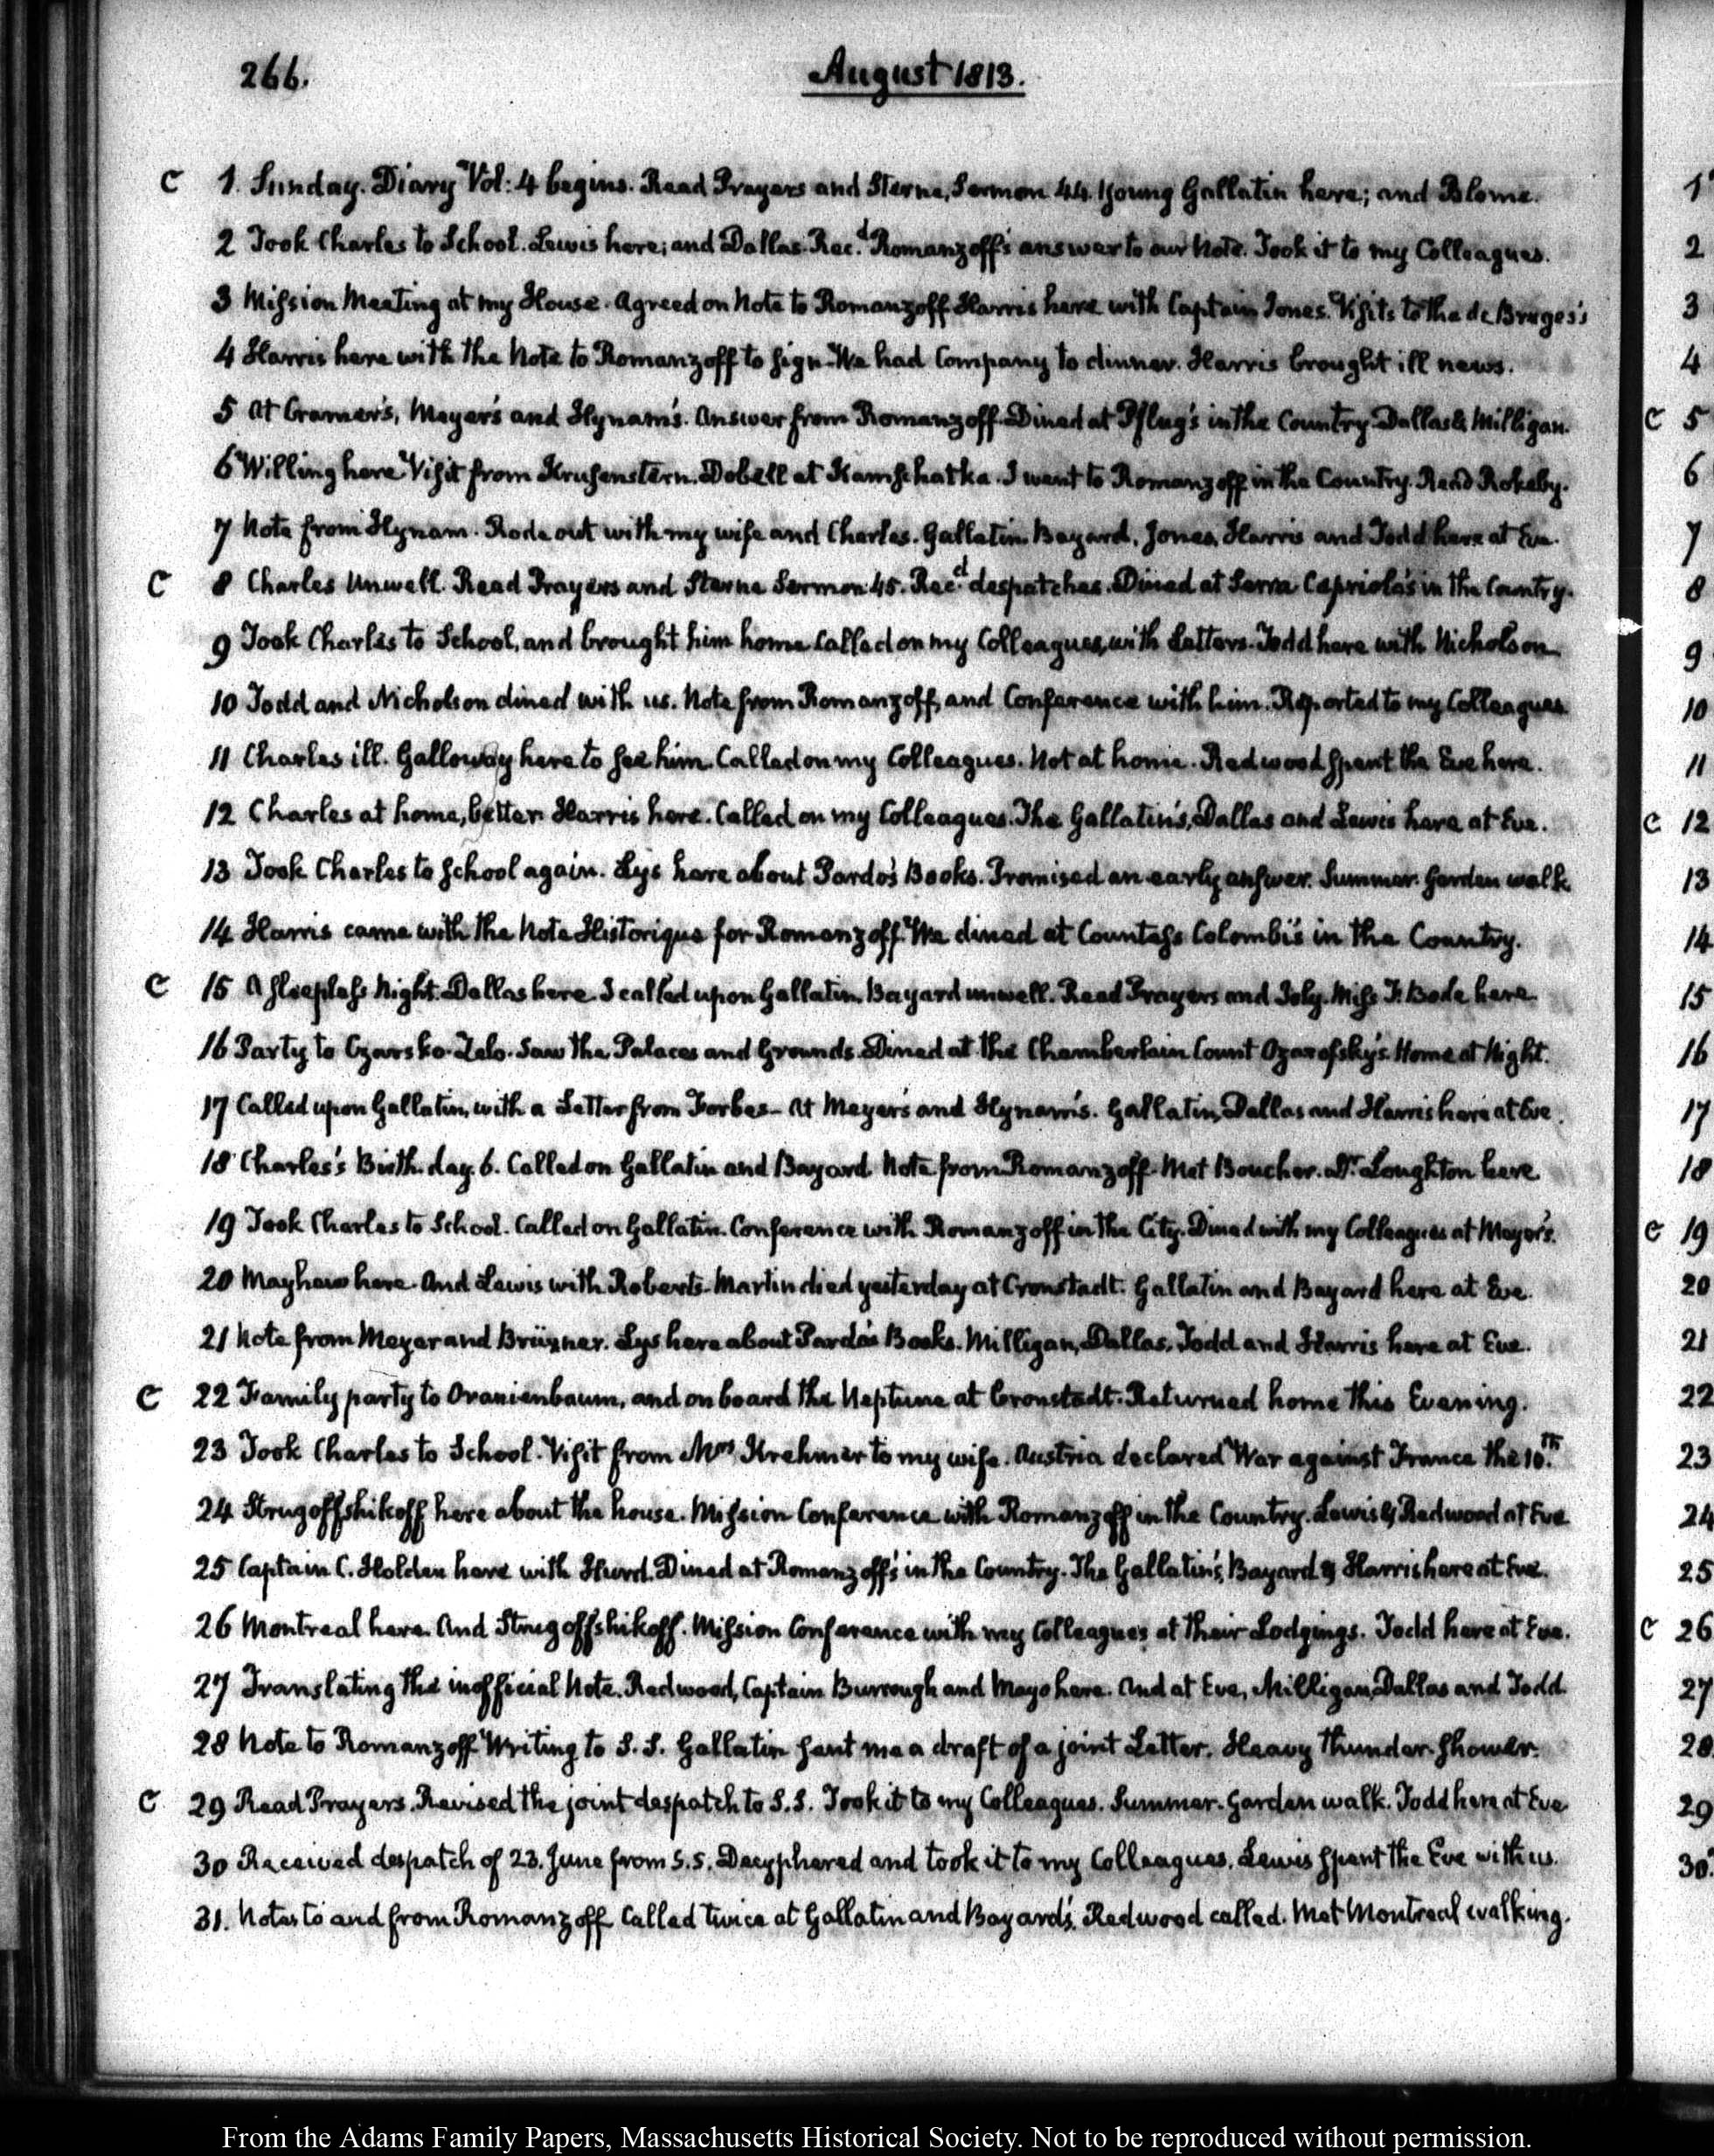 266.
August 1813.
C 1. Sunday. Diary Vol: 4 begins. Read Prayers and Sterne, Sermon 44. Young Gallatin here; and Blome.
2 Took Charles to School. Lewis here; and Dallas. Rec.d Romanzoff's answer to our Note. Took it to my Colleagues.
3 Mission Meeting at my House. Agreed on Note to Romanzoff Harris here with Captain Jones. Visits to the de Bruges's
4 Harris here with the Note to Romanzoff to sign. We had Company to dinner. Harris brought ill news.
5 At Cramer's, Meyer's and Hynam's. Answer from Romanzoff. Dined at Pflug's in the Country. Dallas & Milligan.
6 Willing here Visit from Krusenstern. Dobell at Kamschatka. I went to Romanzoff in the Country. Read Rokeby.
7 Note from Hynam. Rode out with my wife and Charles. Gallatin Bayard, Jones, Harris and Todd here at Eve.
C 8 Charles Unwell. Read Prayers and Sterne Sermon 45. Rec.d despatches. Dined at Serra Capriola's in the Country.
9 Took Charles to School, and brought him home Called on my Colleagues, with Letters. Todd here with Nicholson
10 Todd and Nicholson dined with us. Note from Romanzoff, and Conference with him. Reported to my Colleagues.
11 Charles ill. Galloway here to see him. Called on my Colleagues. Not at home. Redwood spent the Eve here.
12 Charles at home, better. Harris here. Called on my Colleagues. The Gallatin's, Dallas and Lewis here at Eve.
13 Took Charles to School again. Lys here about Pardo's Books. Promised an early answer. Summer. Garden walk.
14 Harris came with the Note Historique for Romanzoff. We dined at Countess Colombi's in the Country.
C 15 A sleepless Night. Dallas here. I called upon Gallatin. Bayard unwell. Read Prayers and Joly. Miss T. Bode here.
16 Party to Czarsko-Zelo. Saw the Palaces and Grounds. Dined at the Chamberlain Count Ozarofsky's. Home at Night.
17 Called upon Gallatin, with a Letter from Forbes - At Meyer's and Hynam's. Gallatin, Dallas and Harris here at Eve.
18 Charles's Birth-day. 6. Called on Gallatin and Bayard. Note from Romanzoff. Met Boucher. Dr. Loughton here.
19 Took Charles to School. Called on Gallatin. Conference with Romanzoff in the City. Dined with my Colleagues at Meyer's.
20 Mayhew here. And Lewis with Roberts. Martin died yesterday at Cronstadt. Gallatin and Bayard here at Eve.
21 Note from Meyer and Brüxner. Lys here about Pardo's Books. Milligan, Dallas, Todd and Harris here at Eve.
C 22 Family party to Oranienbaum, and on board the Neptune at Cronstadt. Returned home this Evening.
23 Took Charles to School. Visit from Mrs Krehmer to my wife. Austria declared War against France the 10.th
24 Strugoffshikoff here about the house. Mission Conference with Romanzoff in the Country. Lewis & Redwood at Eve
25 Captain C. Holden here with Hurd. Dined at Romanzoff's in the Country. The Gallatin's, Bayard & Harris here at Eve.
26 Montreal here. And Strugoffshikoff. Mission Conference with my Colleagues at their Lodgings. Todd here at Eve.
27 Translating the inofficial Note. Redwood, Captain Burrough and Mayo here. And at Eve, Milligan, Dallas and Todd.
28 Note to Romanzoff Writing to S. S. Gallatin sent me a draft of a joint Letter. Heavy thunder-shower.
C 29 Read Prayers. Revised the joint despatch to S. S. Took it to my Colleagues. Summer. Garden walk. Todd here at Eve
30 Received despatch of 23. June from S. S. Decyphered and took it to my Colleagues. Lewis spent the Eve with us.
31. Notes to and from Romanzoff Called twice at Gallatin and Bayard's. Redwood called. Met Montreal walking.
1
2
3
4
C 5
6
7
8
9
10
11
C 12
13
14
15
16
17
18
C 19
20
21
22
23
24
25
C 26
27
28
29
30.
From the Adams Family Papers, Massachusetts Historical Society. Not to be reproduced without permission.